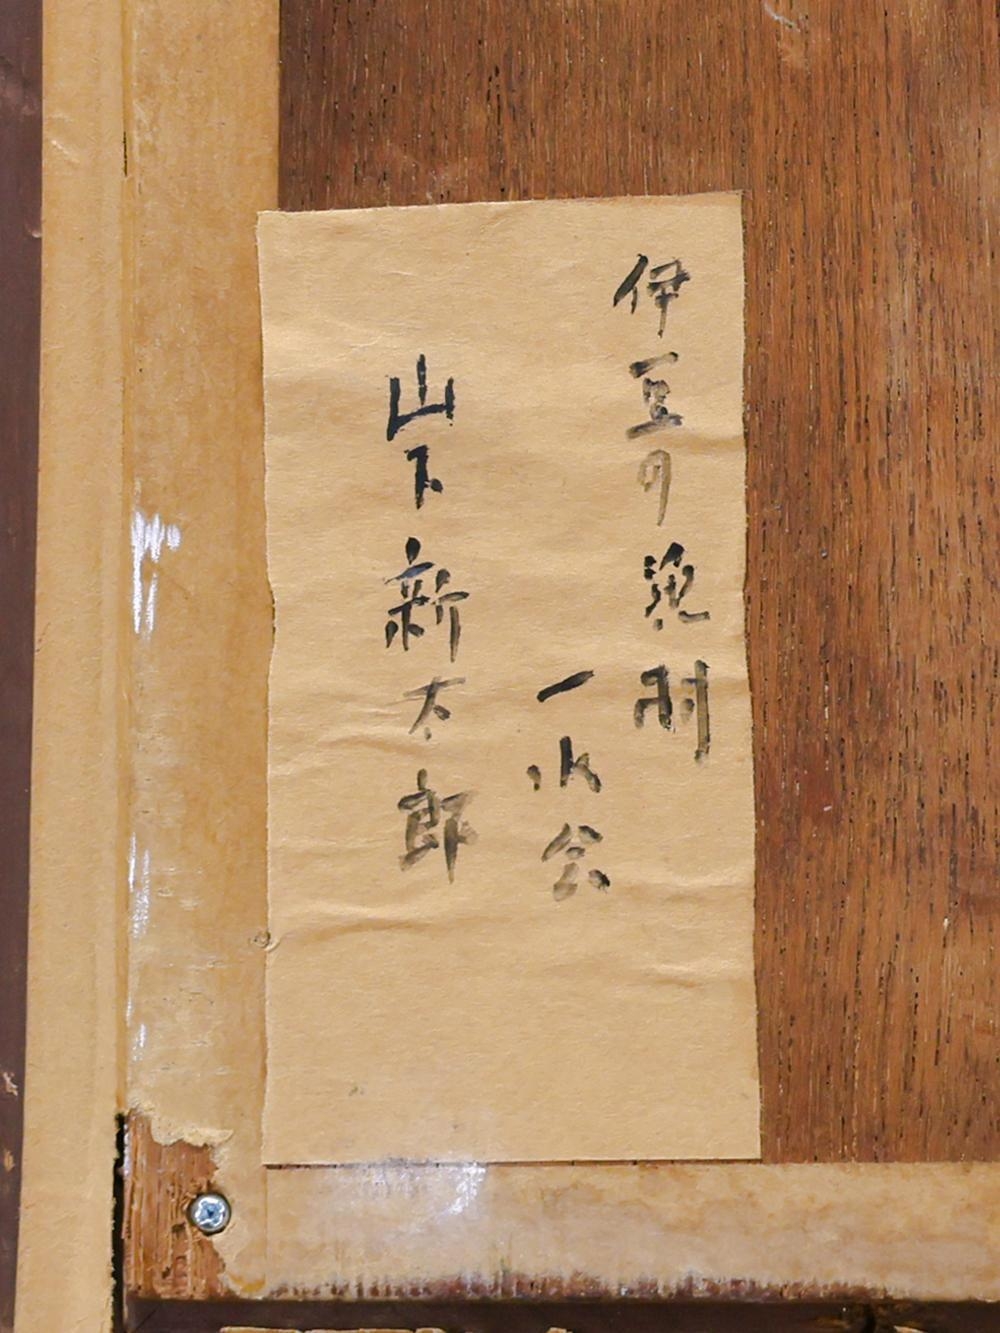 伊豆の漁村
一水会
山下新太郎